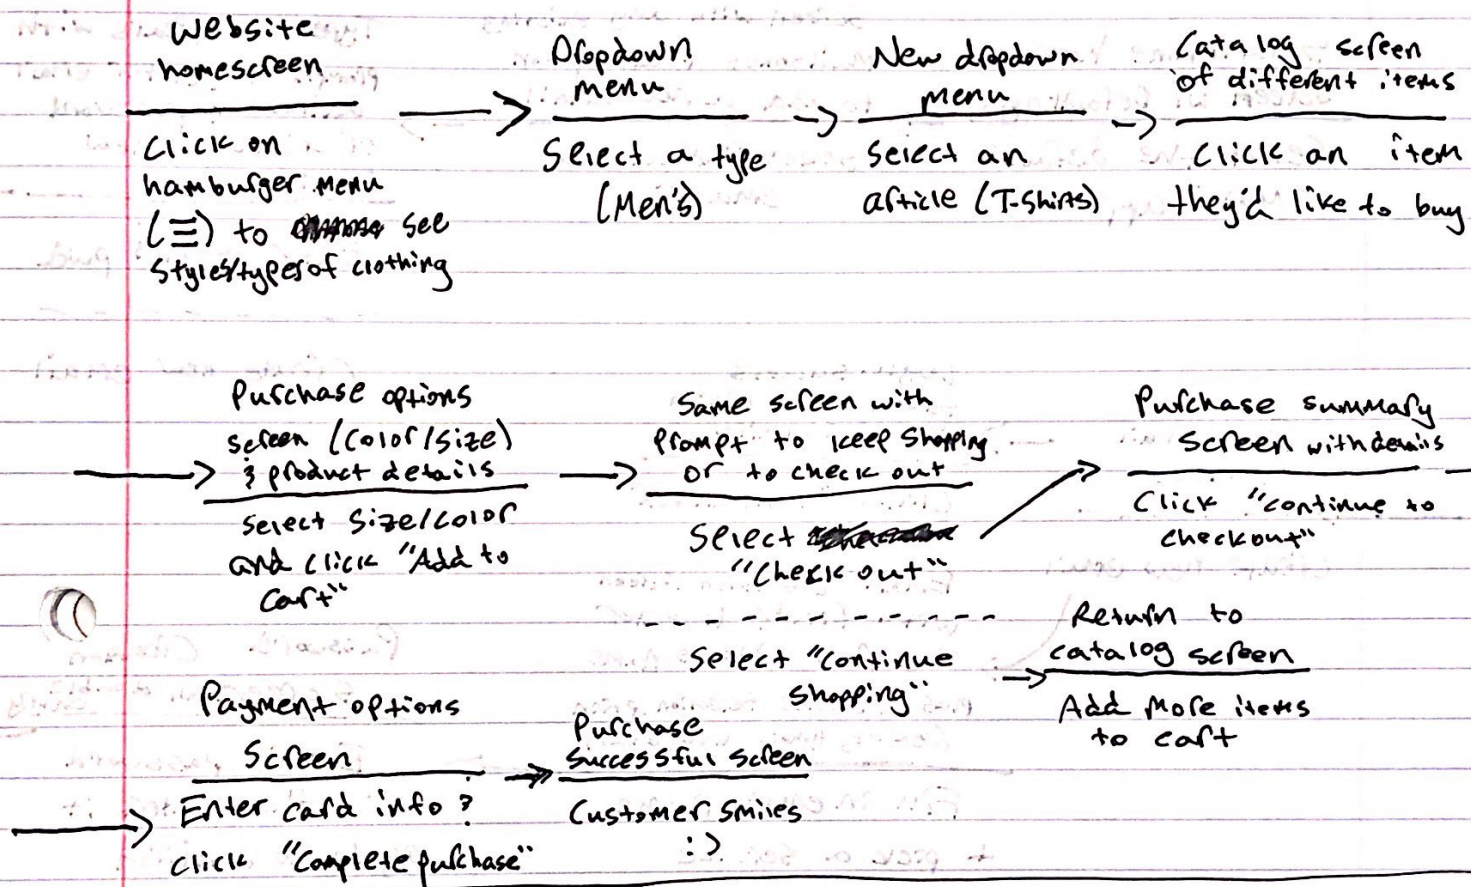 Website
homescreen
Click on
hamburger menu
(☰) to see
styles/types of clothing
Dropdown
menu
Select a type
(Men's)
New dropdown
menu
Select an
article (T-Shirts)
Catalog screen
of different items
Click an item
they'd like to buy
Purchase options
screen (Color/Size)
& product details
Select Size/Color
and click "Add to
Cart"
Same screen with
Prompt to keep shopping
or to check out
Select
"Check out"
Select "Continue
shopping"
Purchase summary
screen with details
Click "Continue to
checkout"
Return to
catalog screen
Add more items
to cart
Payment options
Screen
Enter card info &
click "Complete purchase"
Purchase
Successful screen
Customer smiles
:)